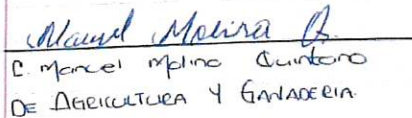 Manuel Molina Q.
C. Marcel Molina Quintana
DE AGRICULTURA Y GANADERIA.